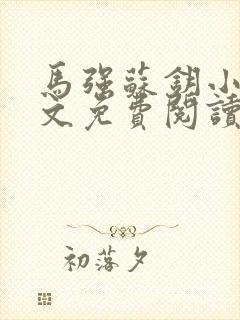 馬強蘇鈅小
文免費閱讀
初落夕